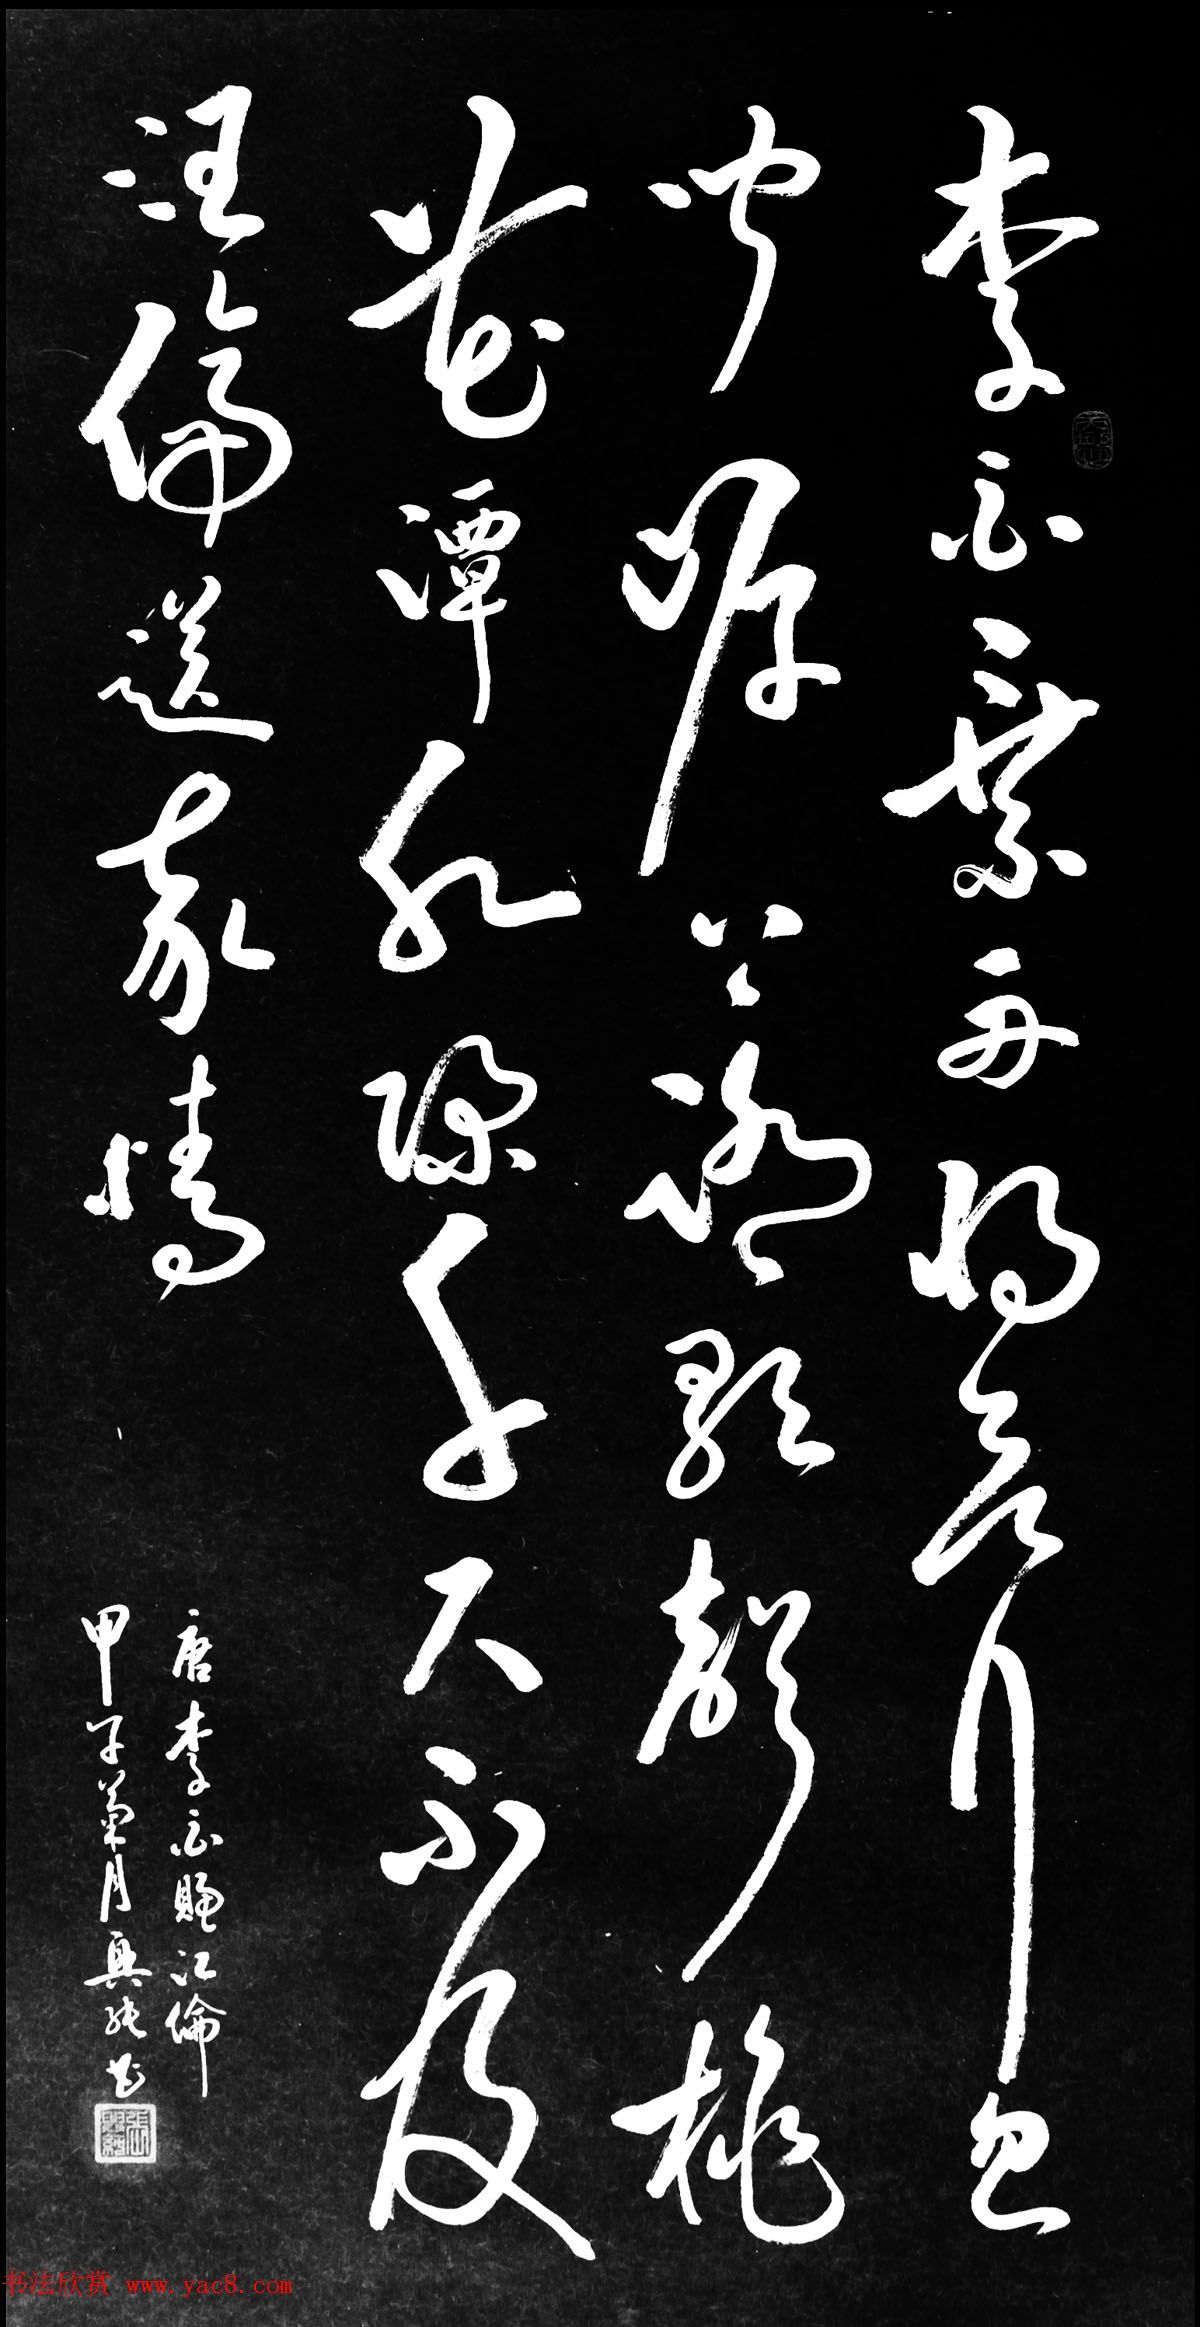 李白乘舟將欲行忽
聞岸上踏歌聲桃
花潭水深千尺不及
汪倫送我情
唐李白贈汪倫
甲子菊月興純書
书法欣赏 www.yac8.com